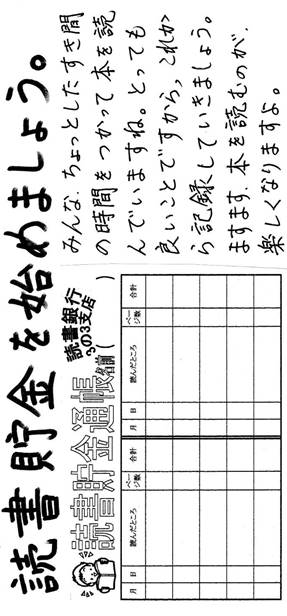 読書貯金を始めましょう。
みんな、ちょっとしたすき間
の時間をつかって本を読
んでいますね。とっても
良いことですから、これか
ら記録していきましょう。
ますます、本を読むのが、
楽しくなりますよ。
読書貯金通帳
読書銀行
の3支店
名前（　　　）
月 日 読んだところ ページ数 合計 月 日 読んだところ ページ数 合計